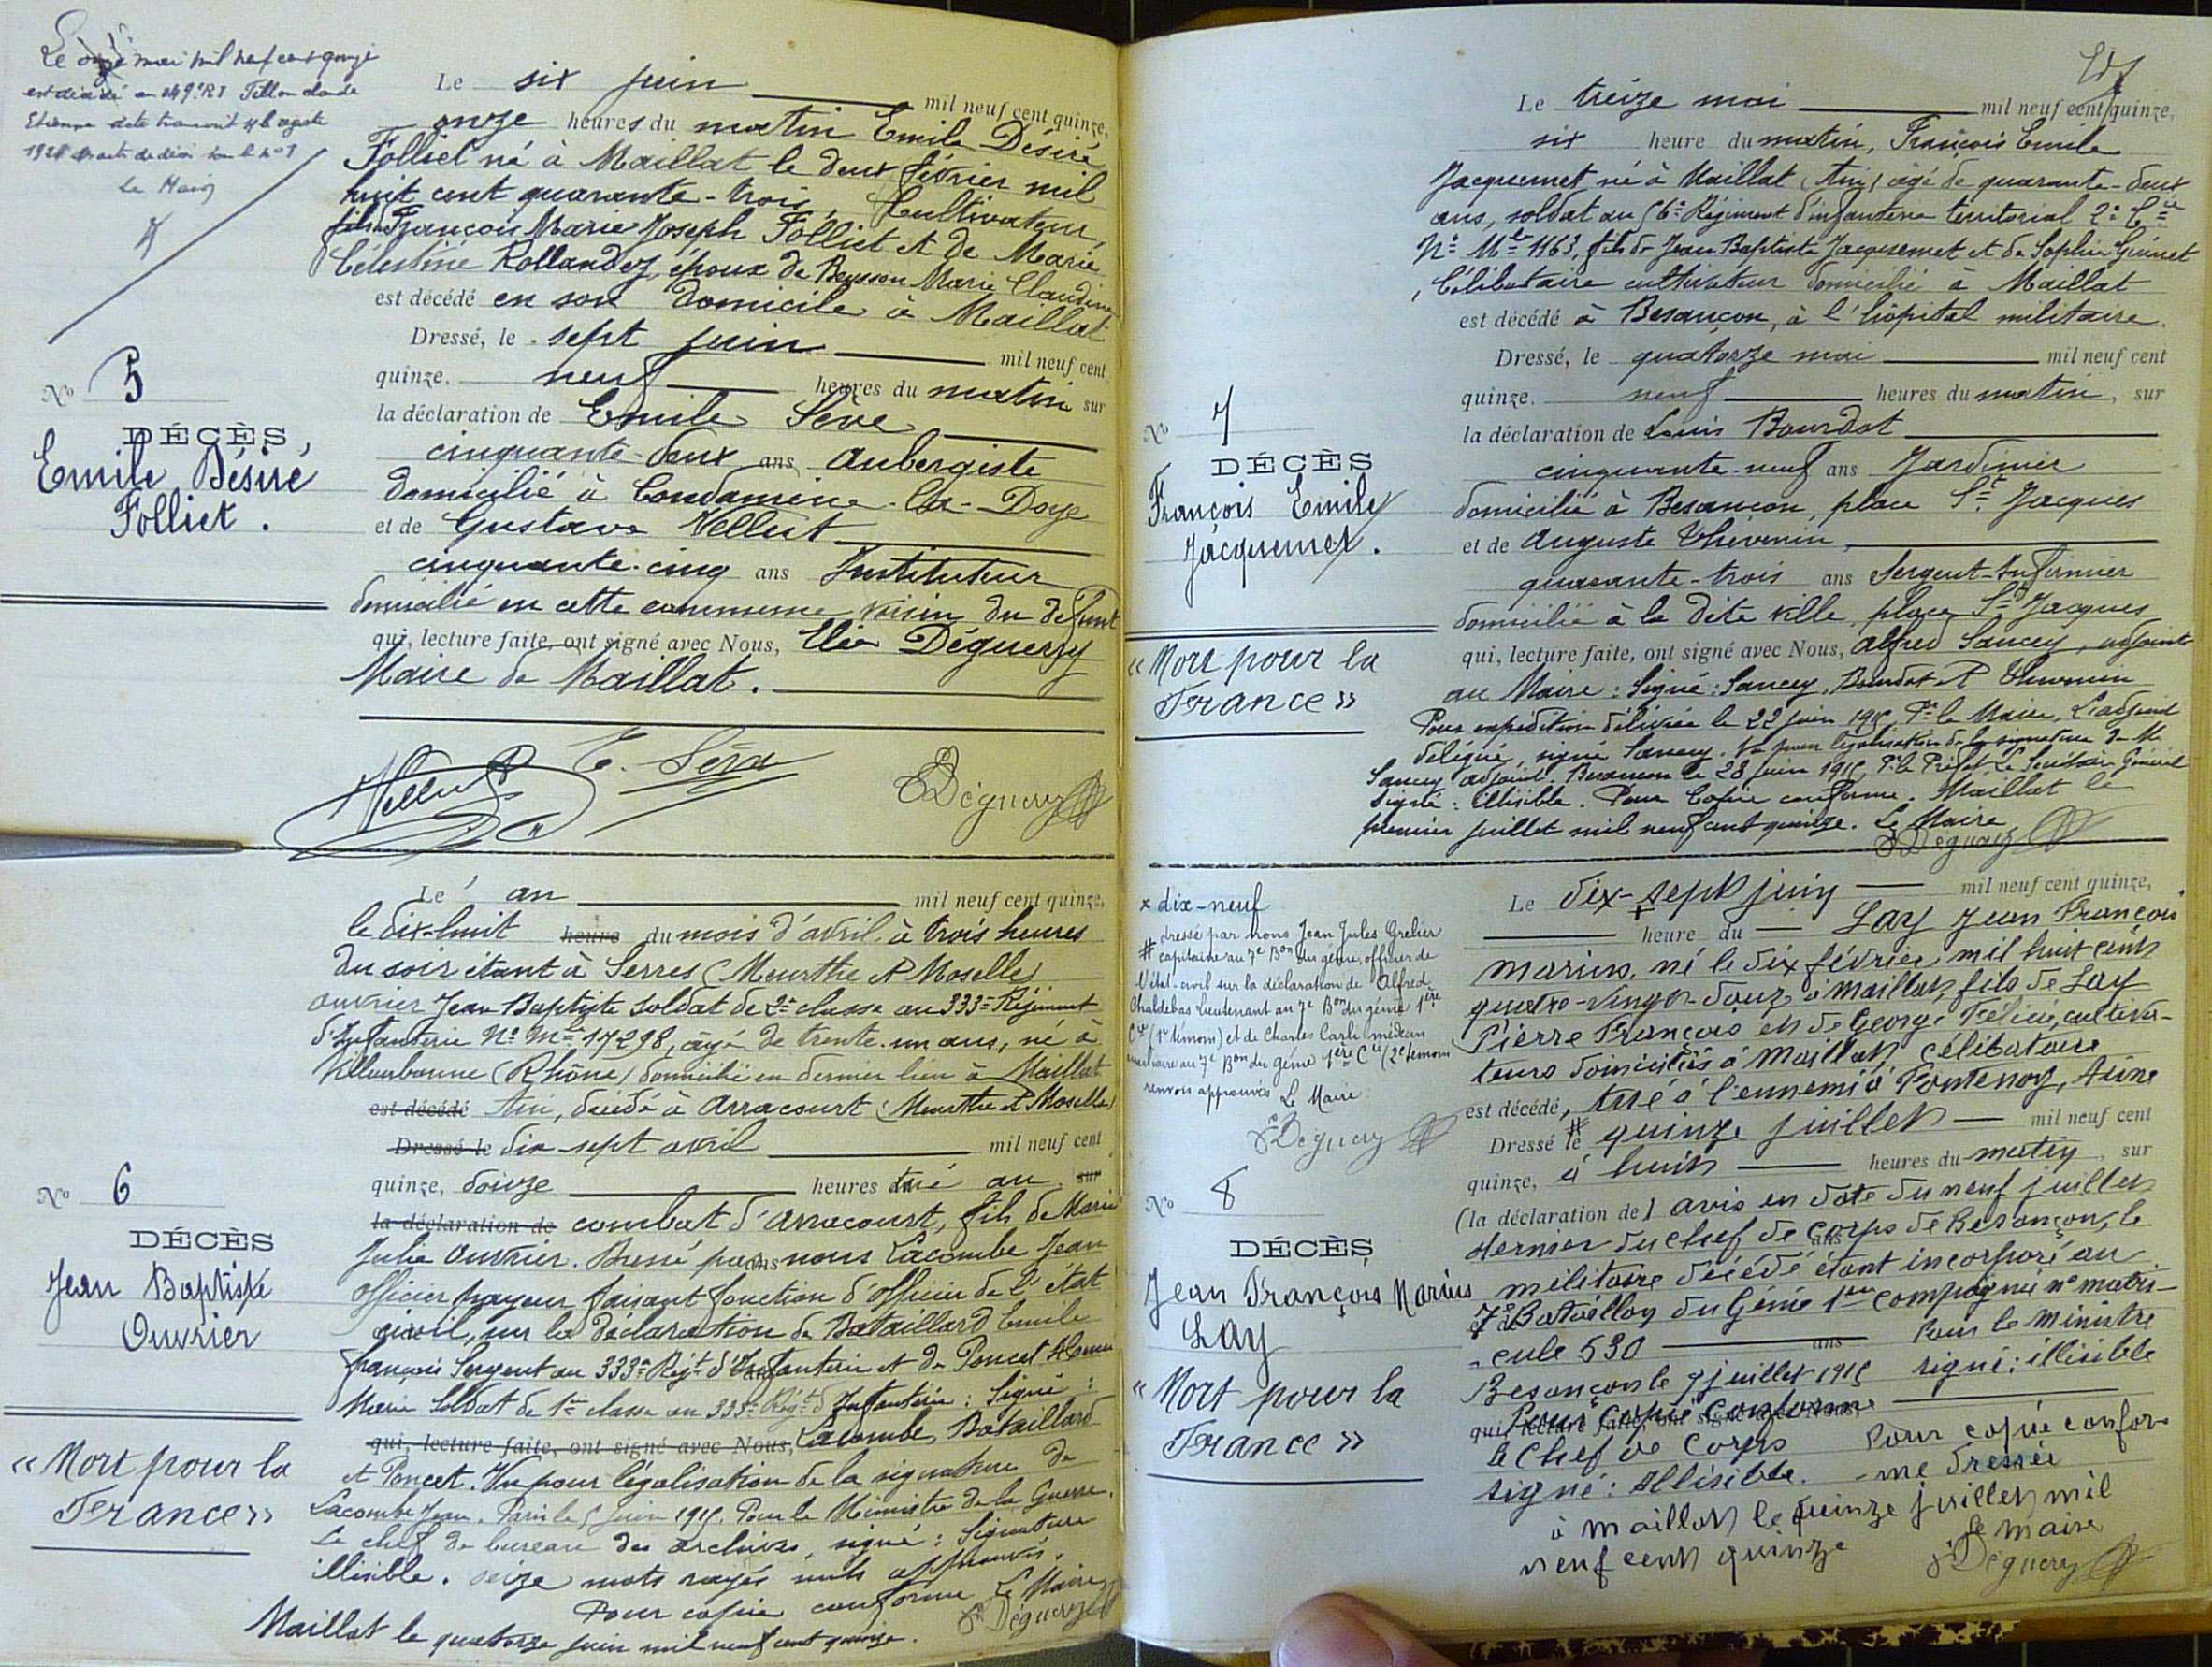 Le mai mil neuf cent quinze
est décédé au 149e RI Tillon claude
Etienne
1921 acte de décès
Le Maire
Le six juin mil neuf cent quinze,
onze heures du matin Emile Désiré
Folliet né à Maillat le deux février mil
huit cent quarante-trois, Cultivateur,
fils de François Marie Joseph Folliet et de Marie
Célestine Rollandez, époux de Beysson Marie Claudine
est décédé en son domicile à Maillat.
Dressé, le sept juin mil neuf cent
quinze, neuf heures du matin sur
la déclaration de Emile Seve
cinquante-deux ans Aubergiste
domicilié à Condamine-la-Doye
et de Gustave Vellut
cinquante-cinq ans Instituteur
domicilié en cette commune voisin du défunt
qui, lecture faite, ont signé avec Nous, Elie Déguerry
Maire de Maillat.
No 5
DÉCÈS
Emile Désiré
Folliet.
Vellut E. Sève E Déguerry
Le an mil neuf cent quinze,
le dix-huit heure du mois d'avril à trois heures
du soir étant à Serres (Meurthe et Moselle)
ouvrier Jean Baptiste soldat de 2e classe au 333e Régiment
d'Infanterie No Mle 17298, âgé de trente-un ans, né à
Villeurbanne (Rhône) domicilié en dernier lieu à Maillat
est décédé Ain, décédé à Arracourt (Meurthe et Moselle)
Dressé le dix-sept avril mil neuf cent
quinze, douze heures tué au sur
la déclaration de combat d'Arracourt, fils de Marie
Julie Ouvrier. Dressé par nous Lacombe Jean
officier payeur faisant fonction d'officier de l'état
civil, sur la déclaration de Bataillard Emile
françois Sergent au 333e Régt d'Infanterie et de Poncet
Marie Soldat de 1re classe au 333e Régt d'Infanterie : Signé :
qui, lecture faite, ont signé avec Nous, Lacombe, Bataillard
et Poncet. Vu pour légalisation de la signature de
Lacombe Jean. Paris le 5 juin 1915. Pour le Ministre de la Guerre.
Le chef de bureau des archives, signé : Signature
illisible. seize mots rayés nuls approuvés.
Pour copie conforme Le Maire
Maillat le quatorze juin mil neuf cent quinze. E Déguerry
No 6
DÉCÈS
Jean Baptiste
Ouvrier
« Mort pour la
France »
Le treize mai mil neuf cent quinze,
six heure du matin, François Emile
Jacquemet né à Maillat (Ain) âgé de quarante-deux
ans, soldat au 56e Régiment d'infanterie territorial 2e Cie
No Mle 1163, fils de Jean Baptiste Jacquemet et de Sophie Guinet
, Célibataire cultivateur domicilié à Maillat
est décédé à Besançon, à l'hôpital militaire.
Dressé, le quatorze mai mil neuf cent
quinze, neuf heures du matin, sur
la déclaration de Louis Bourdot
cinquante-neuf ans Jardinier
domicilié à Besançon, place St Jacques
et de Auguste Thévenin,
quarante-trois ans Sergent-Infirmier
domicilié à la dite ville, place St Jacques
qui, lecture faite, ont signé avec Nous, Alfred Sancey, adjoint
au Maire : Signé : Sancey, Bourdot et Thevenin
Pour expédition délivrée le 22 juin 1915, Pr le Maire, L'adjoint
délégué, signé Sancey. Vu pour légalisation de la signature de M
Sancey adjoint. Besançon le 28 juin 1915, Pr le Préfet Le Secrétaire Général
Signé : illisible. Pour Copie conforme. Maillat le
premier juillet mil neuf cent quinze. Le Maire
E Déguerry
No 7
DÉCÈS
François Emile
Jacquemet.
« Mort pour la
France »
x dix-neuf
# dressé par nous Jean Jules Grelier
capitaine au 7e Bon du génie, officier de
l'état-civil sur la déclaration de Alfred
Chaldebas Lieutenant au 7e Bon du génie 1ère
Cie (1er témoin) et de Charles Carle médecin
auxiliaire au 7e Bon du génie 1ère Cie (2e témoin)
renvois approuvés Le Maire
E Déguerry
Le dix-sept juin mil neuf cent quinze,
heure du Lay Jean François
Marius, né le dix février mil huit cent
quatre-vingt-douze à Maillat, fils de Lay
Pierre François et de George Félicie, cultiva-
teurs domiciliés à Maillat, célibataire
est décédé, tué à l'ennemi à Fontenoy, Aisne
Dressé le # quinze juillet mil neuf cent
quinze, à huit heures du matin, sur
(la déclaration de) avis en date du neuf juillet
dernier du chef de Corps de Besançon, le
militaire décédé étant incorporé au
7e Bataillon du Génie 1ère compagnie no matri-
cule 530 ans Pour le Ministre
Besançon le 9 juillet 1915 signé : illisible
qui lecture faite, ont signé avec Nous, Pour copie conforme
le Chef de Corps Pour copie confor-
signé : Illisible. -me dressée
à Maillat le quinze juillet mil
neuf cent quinze Le Maire
E Déguerry
No 8
DÉCÈS
Jean François Marius
Lay
« Mort pour la
France »